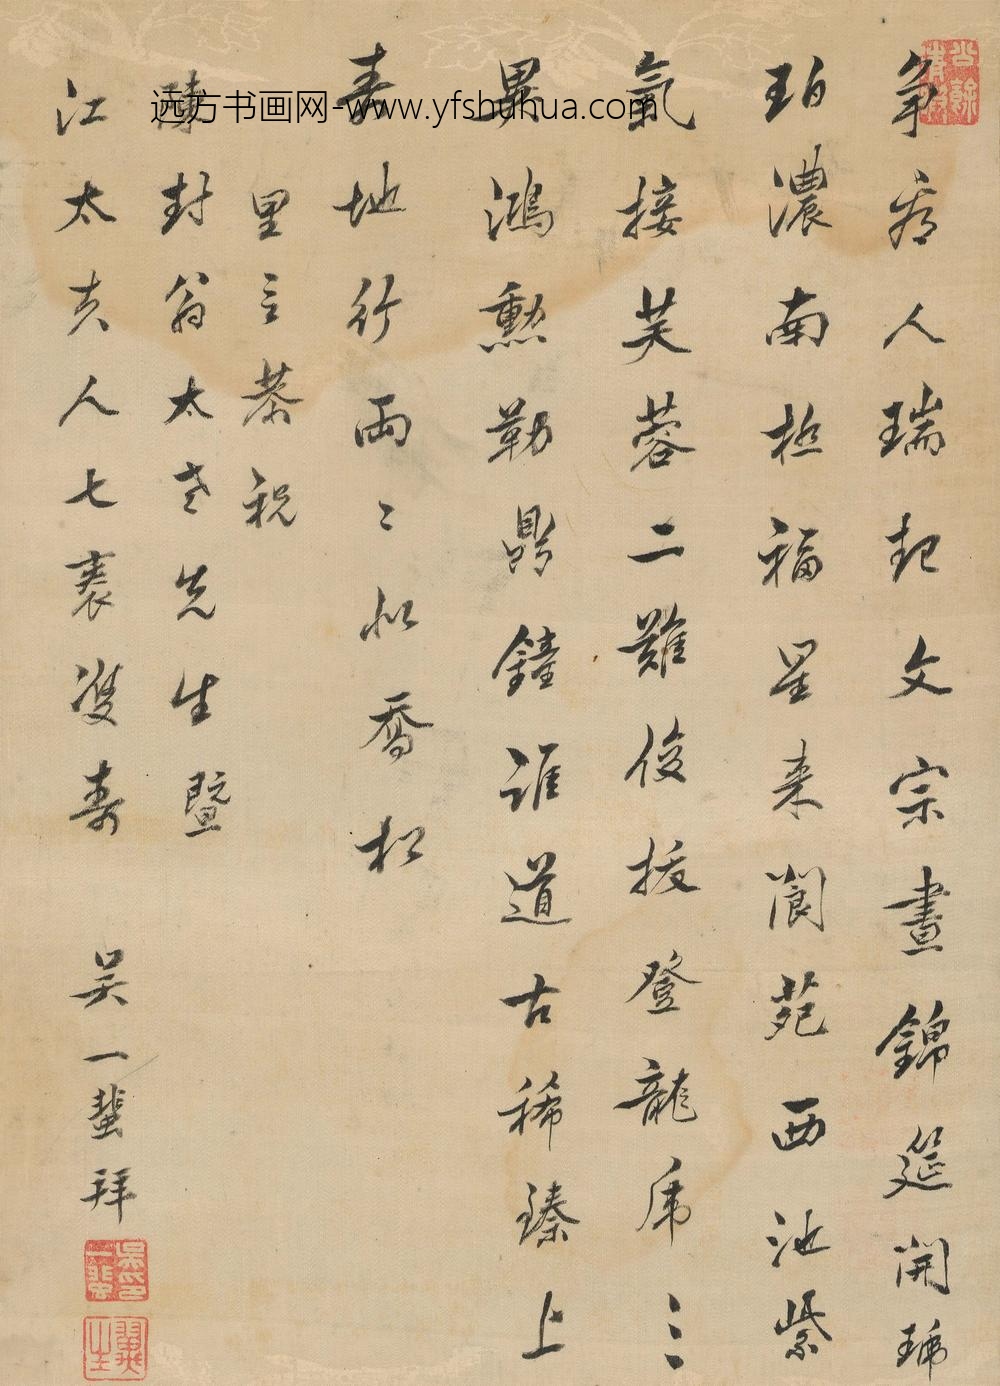 争看人瑞起文宗晝錦筵開琥
珀濃南極福星来閬苑西池紫
氣接芙蓉二難俊拔登龍席三
異鴻勳勒鼎鐘誰道古稀臻上
壽地行兩〻似喬松
里言恭祝
陳封翁太老先生暨
江太夫人七袠雙壽
吴一蜚拜
吳一蜚印
远方书画网-www.yfshuhua.com